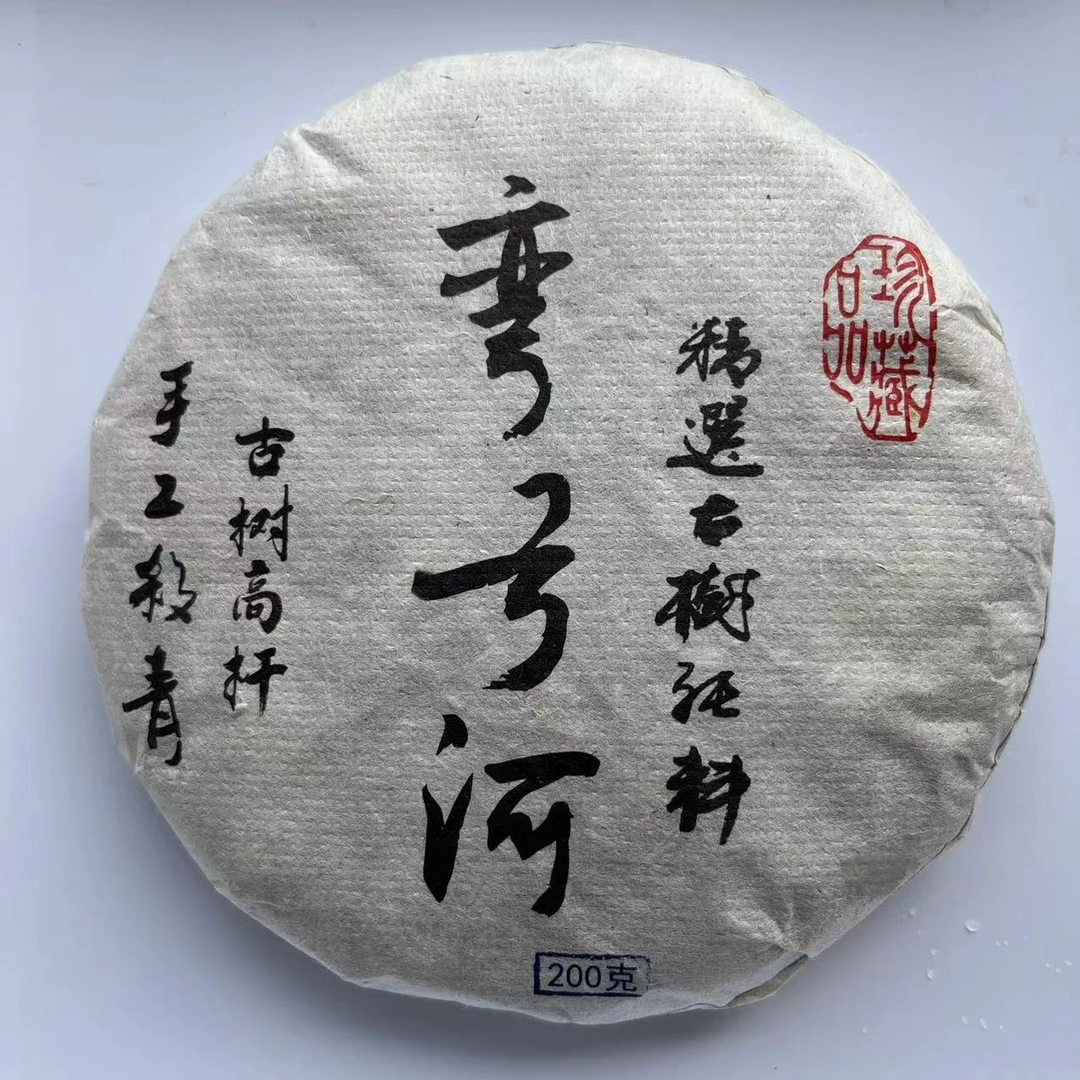 珍藏品
精選古樹純料
弯弓河
古树高杆
手工殺青
200克